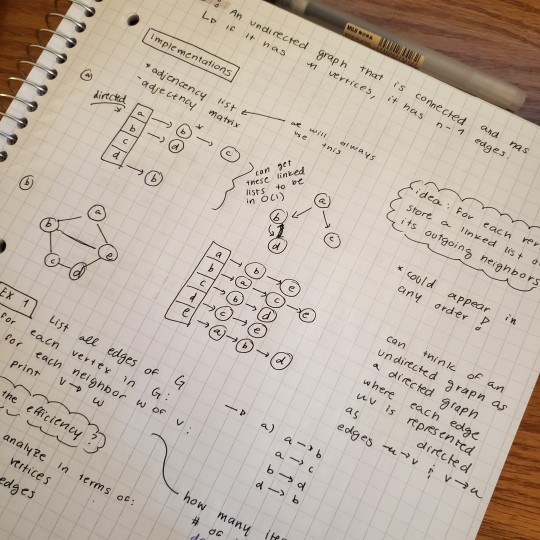 : An undirected graph that is connected and has
↳ if it has n vertices, it has n-1 edges.
MUJI 無印良品
Implementations
* adjencency list
- adjectncy matrix
we will always
use this
ⓐ
directed
a → b → c
b → d
c
d → b
can get
these linked
lists to be
in O(1)
a
b
c
d
idea: For each ver
store a linked list o
its outgoing neighbors
* could appear in
any order!
ⓑ
a
b
c
d
e
a → b → e
b → a → c → e
c → b → d
d → c → e
e → a → b → d
can think of an
undirected graph as
a directed graph
where each edge
uv is represented
as directed
edges u→v & v→u
EX 1
List all edges of G
for each vertex in G:
for each neighbor w of v:
print v → w
the efficiency?
analyze in terms of:
vertices
edges
→ a) a → b
a → c
b → d
d → b
how many
# of